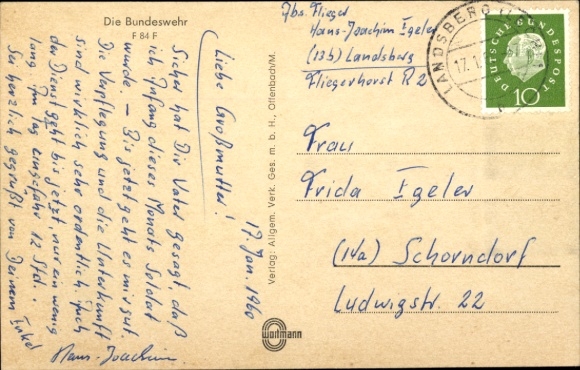 Die Bundeswehr
F 84 F
17. Jan. 1960
Liebe Großmutter!
Sicher hat Dir Vater gesagt, daß
ich Anfang dieses Monats Soldat
wurde. – Bis jetzt geht es mir gut.
Die Verpflegung und die Unterkunft
sind wirklich sehr ordentlich. Auch
der Dienst geht bis jetzt, nur ein wenig
lang. Am Tag ungefähr 12 Std..
Sei herzlich gegrüßt von Deinem Enkel
Hans-Joachim
Verlag: Allgem. Verk. Ges. m. b. H., Offenbach/M.
Woitmann
Abs. Flieger
Hans-Joachim Igeler
(13b) Landsberg
Fliegerhorst R 2
LANDSBERG
17.1.
DEUTSCHE BUNDESPOST
10
Frau
Frida Igeler
(14a) Schorndorf
Ludwigstr. 22